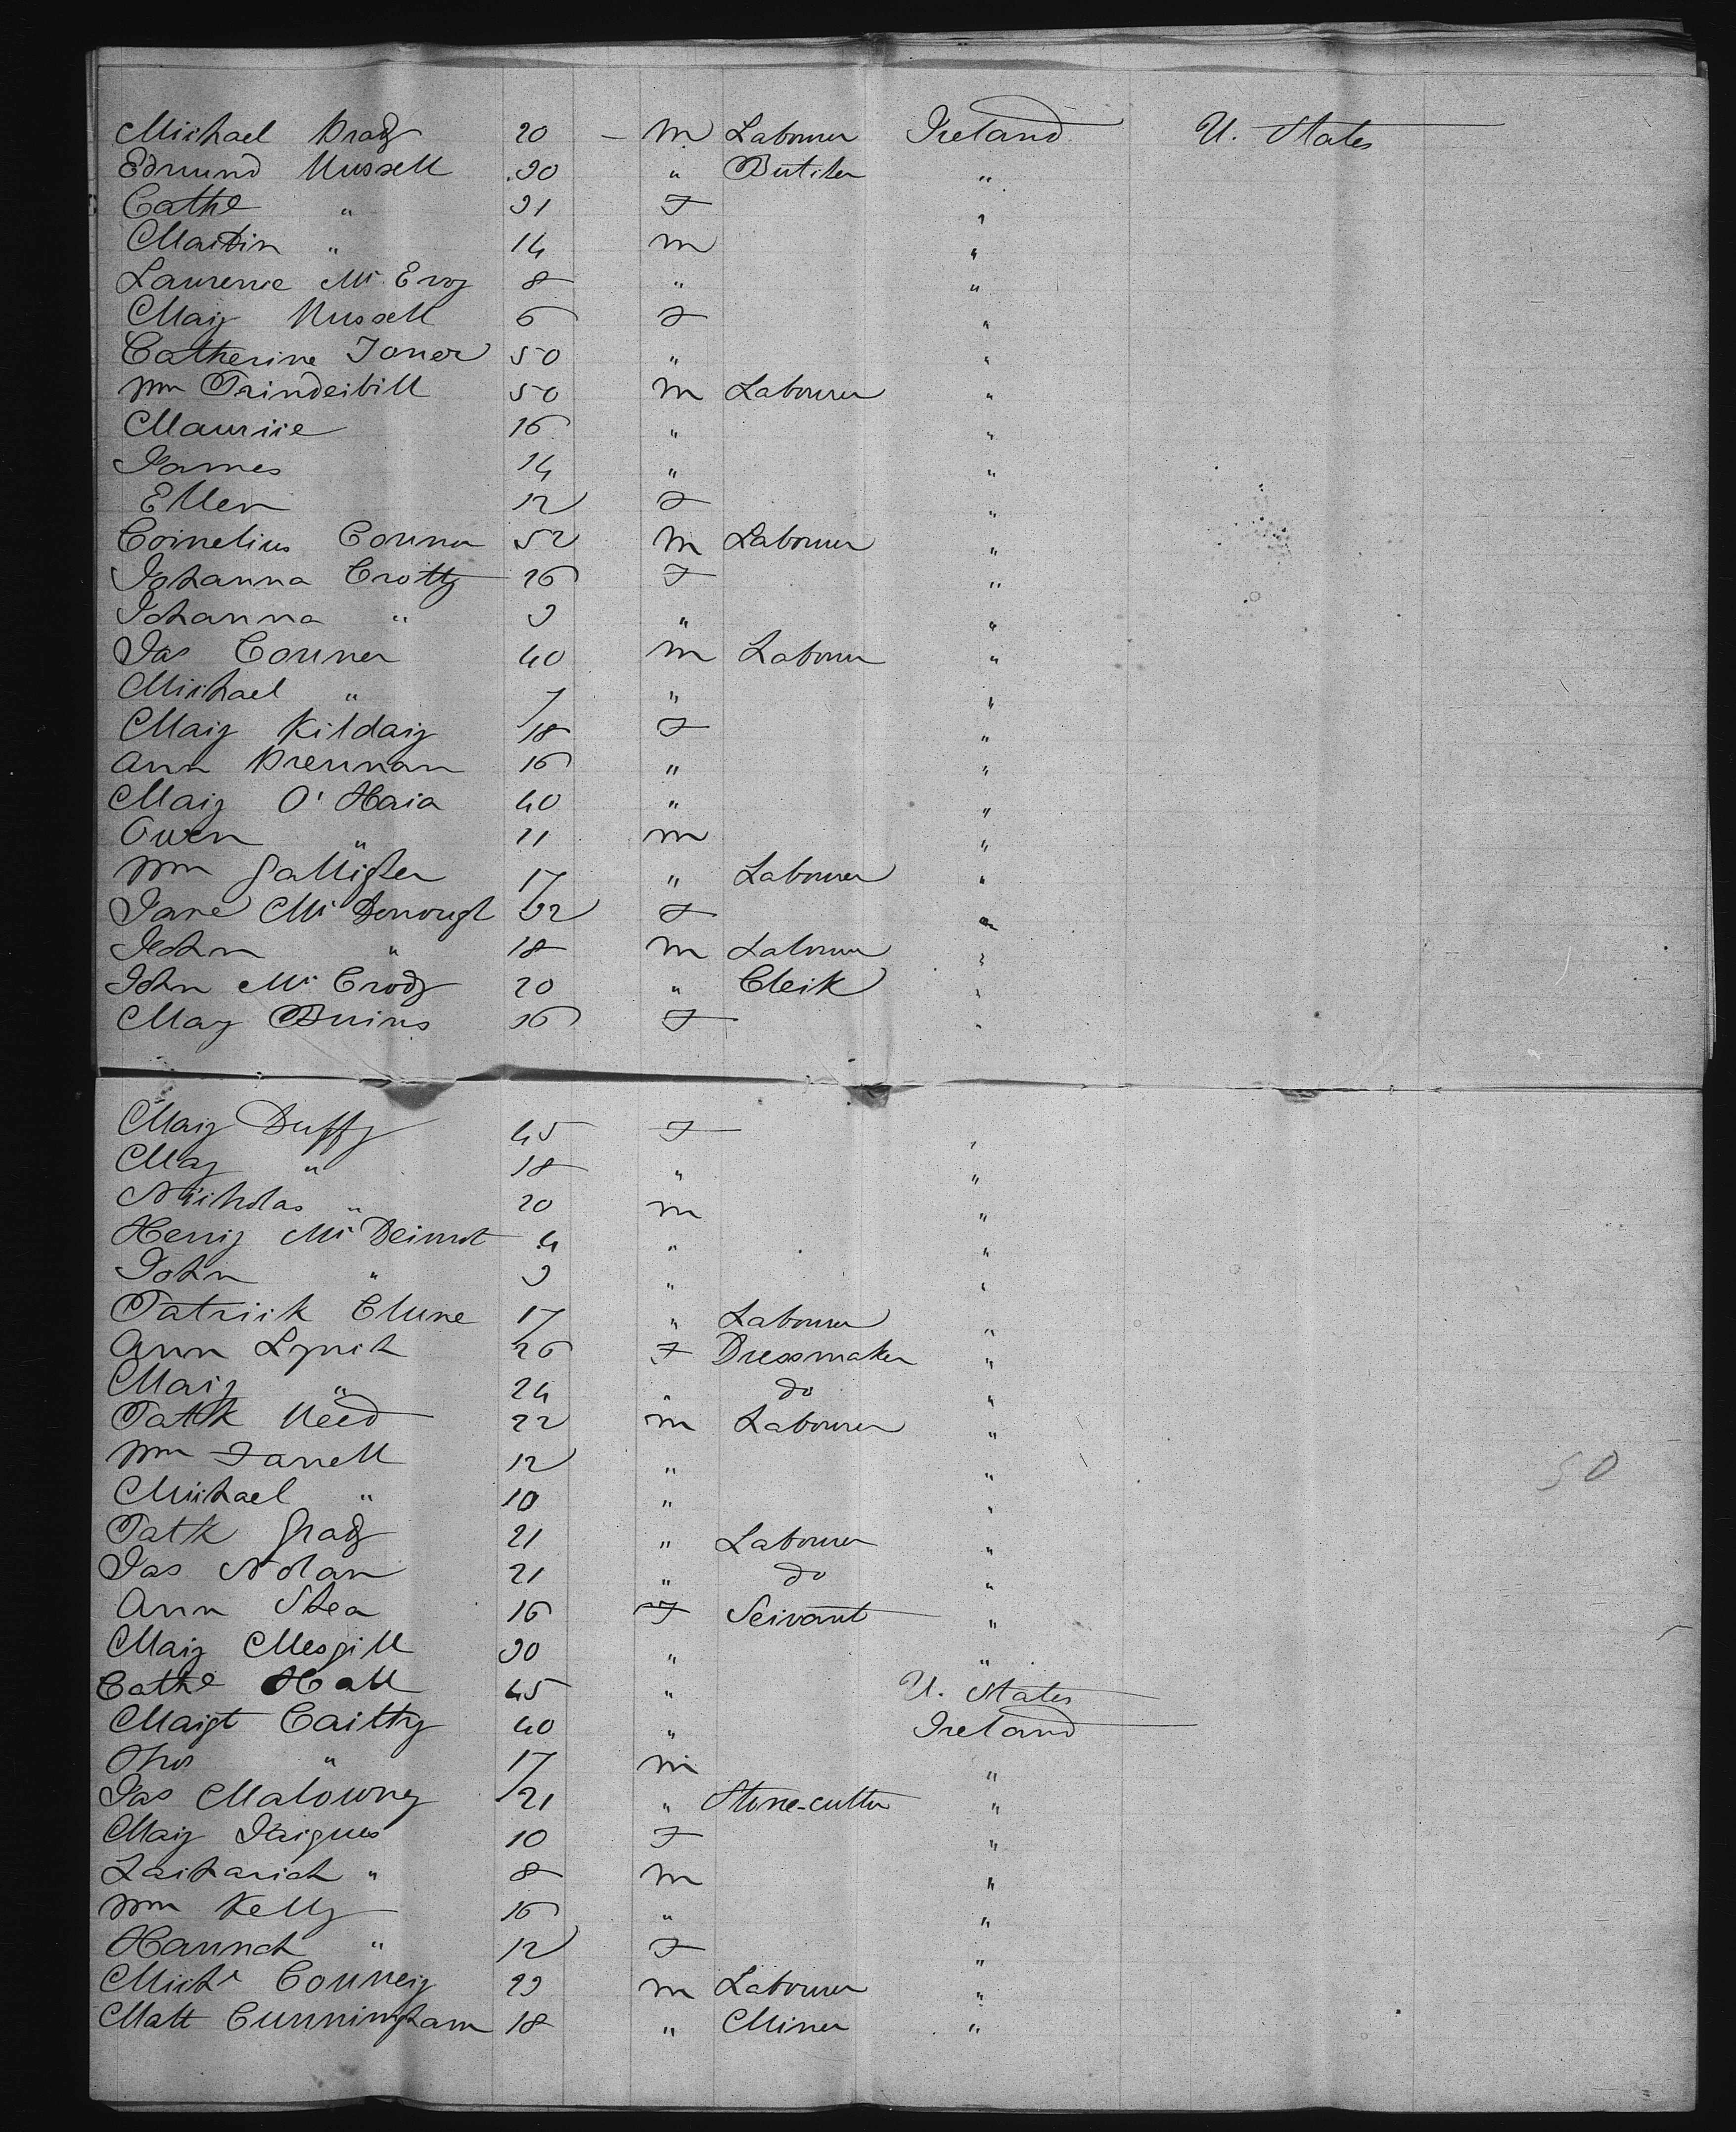 Michael Brady 20 – M Labourer Ireland U. States
Edmund Russell 30 " Butcher "
Cathe " 31 F "
Martin " 14 M "
Laurence Mc Evoy 8 " "
Mary Russell 6 F "
Catherine Joner 50 " "
Wm Prinderbill 50 M Labourer "
Maurice 16 " "
James 14 " "
Ellen 12 F "
Cornelius Conner 52 M Labourer "
Johanna Crotty 26 F "
Johanna " 3 " "
Jas Conner 40 M Labourer "
Michael " 7 " "
Mary Kildary 18 F "
Ann Brennan 16 " "
Mary O'Hara 40 " "
Owen " 11 M "
Wm Galligher 17 " Labourer "
Jane Mc Donough 32 F "
John " 18 M Labourer "
John Mc Crody 20 " Clerk "
May Burns 16 F "
Mary Duffy 45 F "
May " 18 " "
Nicholas " 20 M "
Henry Mc Dermot 4 " "
John " 3 " "
Patrick Clune 17 " Labourer "
Ann Lynch 26 F Dressmaker "
Mary " 24 " do "
Patk Reed 22 M Labourer "
Wm Farrell 12 " "
Michael " 10 " "
50
Patk Grady 21 " Labourer "
Jas Nolan 21 " do "
Ann Shea 16 F Servant "
Mary Mesgill 30 " "
Cathe Hall 45 " U. States
Margt Carthy 40 " Ireland
Thos " 17 M "
Jas Malowney 21 " Stone-cutter "
Mary 10 F "
Zachariah " 8 M "
Wm Kelly 16 " "
Hannah " 12 F "
Michl Connery 23 M Labourer "
Matt Cunningham 18 " Miner "